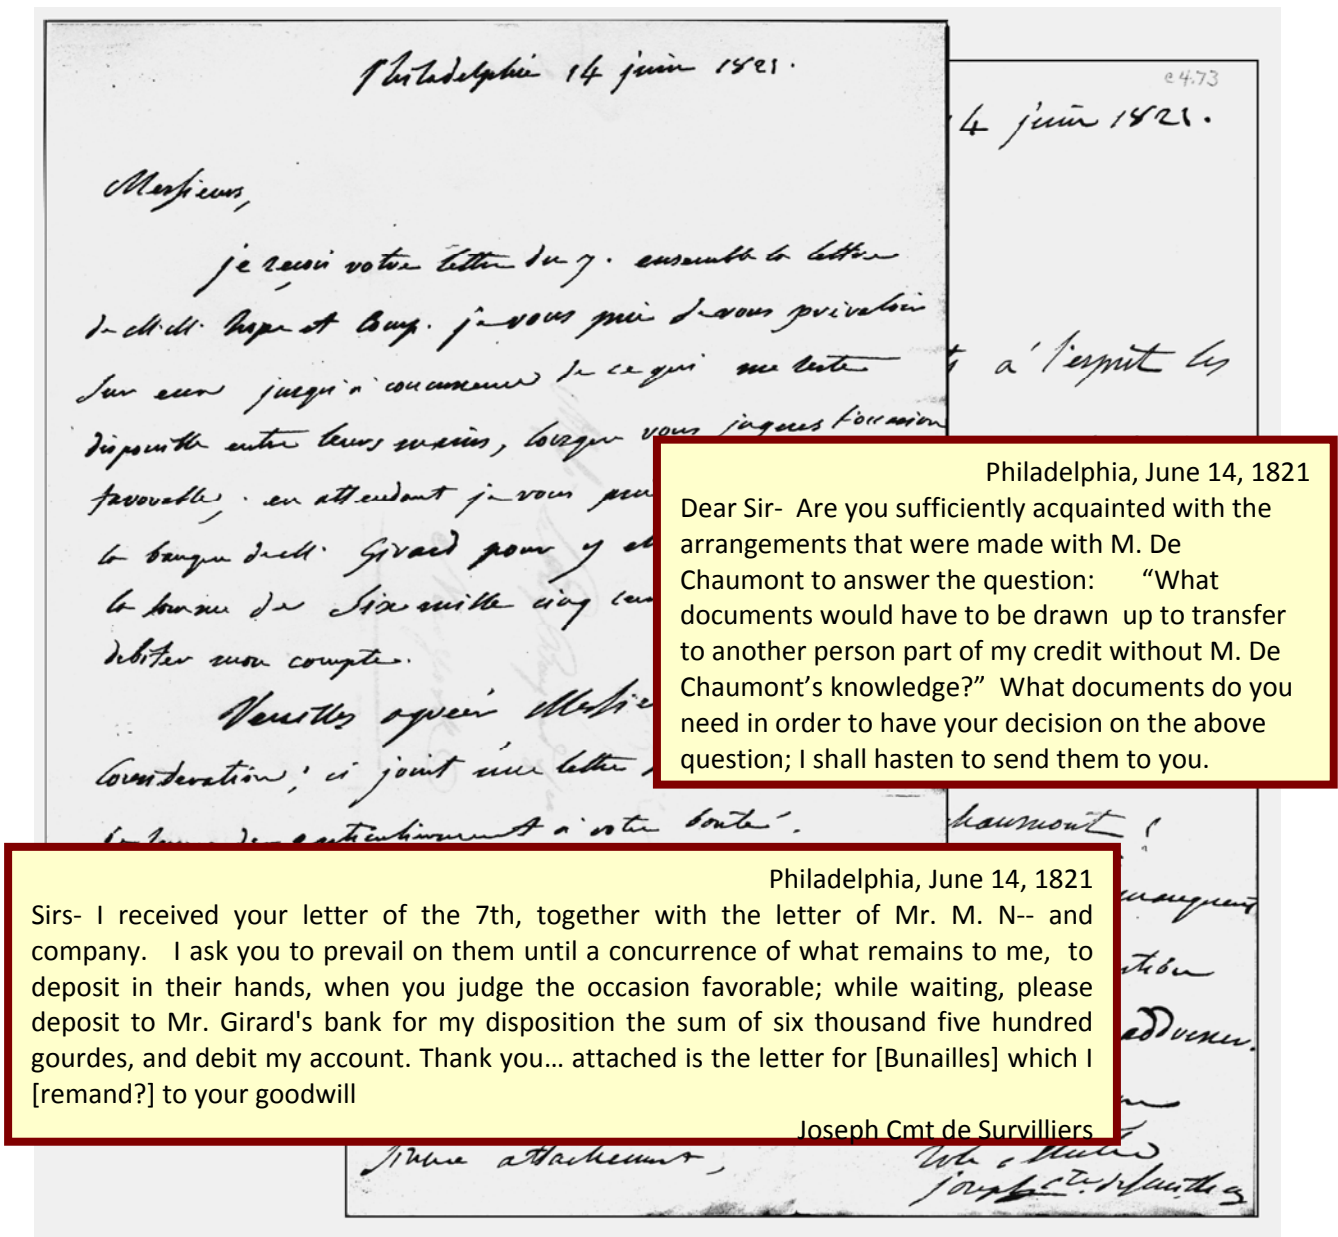 Philadelphie 14 juin 1821.
Messieurs,
je reçois votre lettre du 7. ensemble la lettre
de M.M. hope et Comp. je vous prie de vous prévaloir
sur eux jusqu'à concurrence de ce qui me reste
disponible entre leurs mains, lorsque vous jugerez l'occasion
favorable; en attendant je vous
la banque de M. Girard pour y
la somme de Six mille cinq
débiter mon compte.
Veuillez agréer
Considération; ci joint une lettre
particulièrement à votre bonté.
e4.73
4 juin 1821.
à l'esprit les
Philadelphia, June 14, 1821
Dear Sir- Are you sufficiently acquainted with the
arrangements that were made with M. De
Chaumont to answer the question: “What
documents would have to be drawn up to transfer
to another person part of my credit without M. De
Chaumont’s knowledge?” What documents do you
need in order to have your decision on the above
question; I shall hasten to send them to you.
haumont ?
manquent
adresser.
Philadelphia, June 14, 1821
Sirs- I received your letter of the 7th, together with the letter of Mr. M. N-- and
company. I ask you to prevail on them until a concurrence of what remains to me, to
deposit in their hands, when you judge the occasion favorable; while waiting, please
deposit to Mr. Girard's bank for my disposition the sum of six thousand five hundred
gourdes, and debit my account. Thank you… attached is the letter for [Bunailles] which I
[remand?] to your goodwill
Joseph Cmt de Survilliers
attachement,
joseph